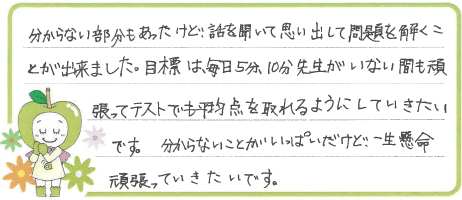 分からない部分もあったけど、話を聞いて思い出して問題を解くこ
とが出来ました。目標は毎日5分、10分先生がいない間も頑
張ってテストでも平均点を取れるようにしていきたい
です。 分からないことがいっぱいだけど、一生懸命
頑張っていきたいです。